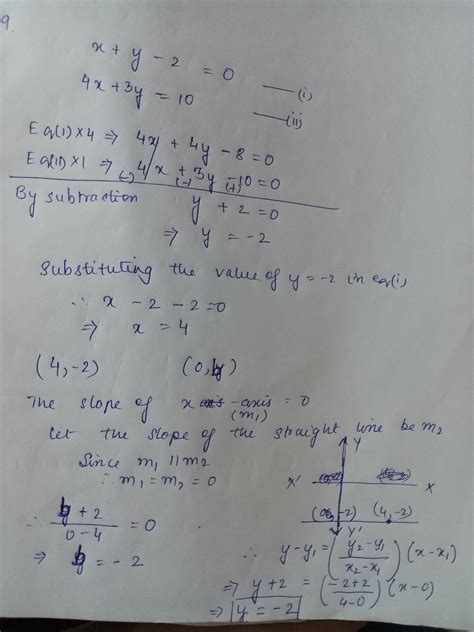 9.
x + y - 2 = 0 —(i)
4x + 3y = 10 —(ii)
Eq(i) × 4 ⇒ 4x + 4y - 8 = 0
Eq(ii) × 1 ⇒ 4x + 3y - 10 = 0
(-) (-) (+)
By subtraction y + 2 = 0
⇒ y = -2
Substituting the value of y = -2 in eq(i)
∴ x - 2 - 2 = 0
⇒ x = 4
(4, -2) (0, y)
The slope of x-axis = 0
(m₁)
Let the slope of the straight line be m₂
Since m₁ || m₂
∴ m₁ = m₂ = 0
Y
X' X
(0, -2) (4, -2)
Y'
∴ y + 2 / 0 - 4 = 0
⇒ y = -2
∴ y - y₁ = (y₂ - y₁ / x₂ - x₁) (x - x₁)
⇒ y + 2 = (-2 + 2 / 4 - 0) (x - 0)
⇒ y = -2